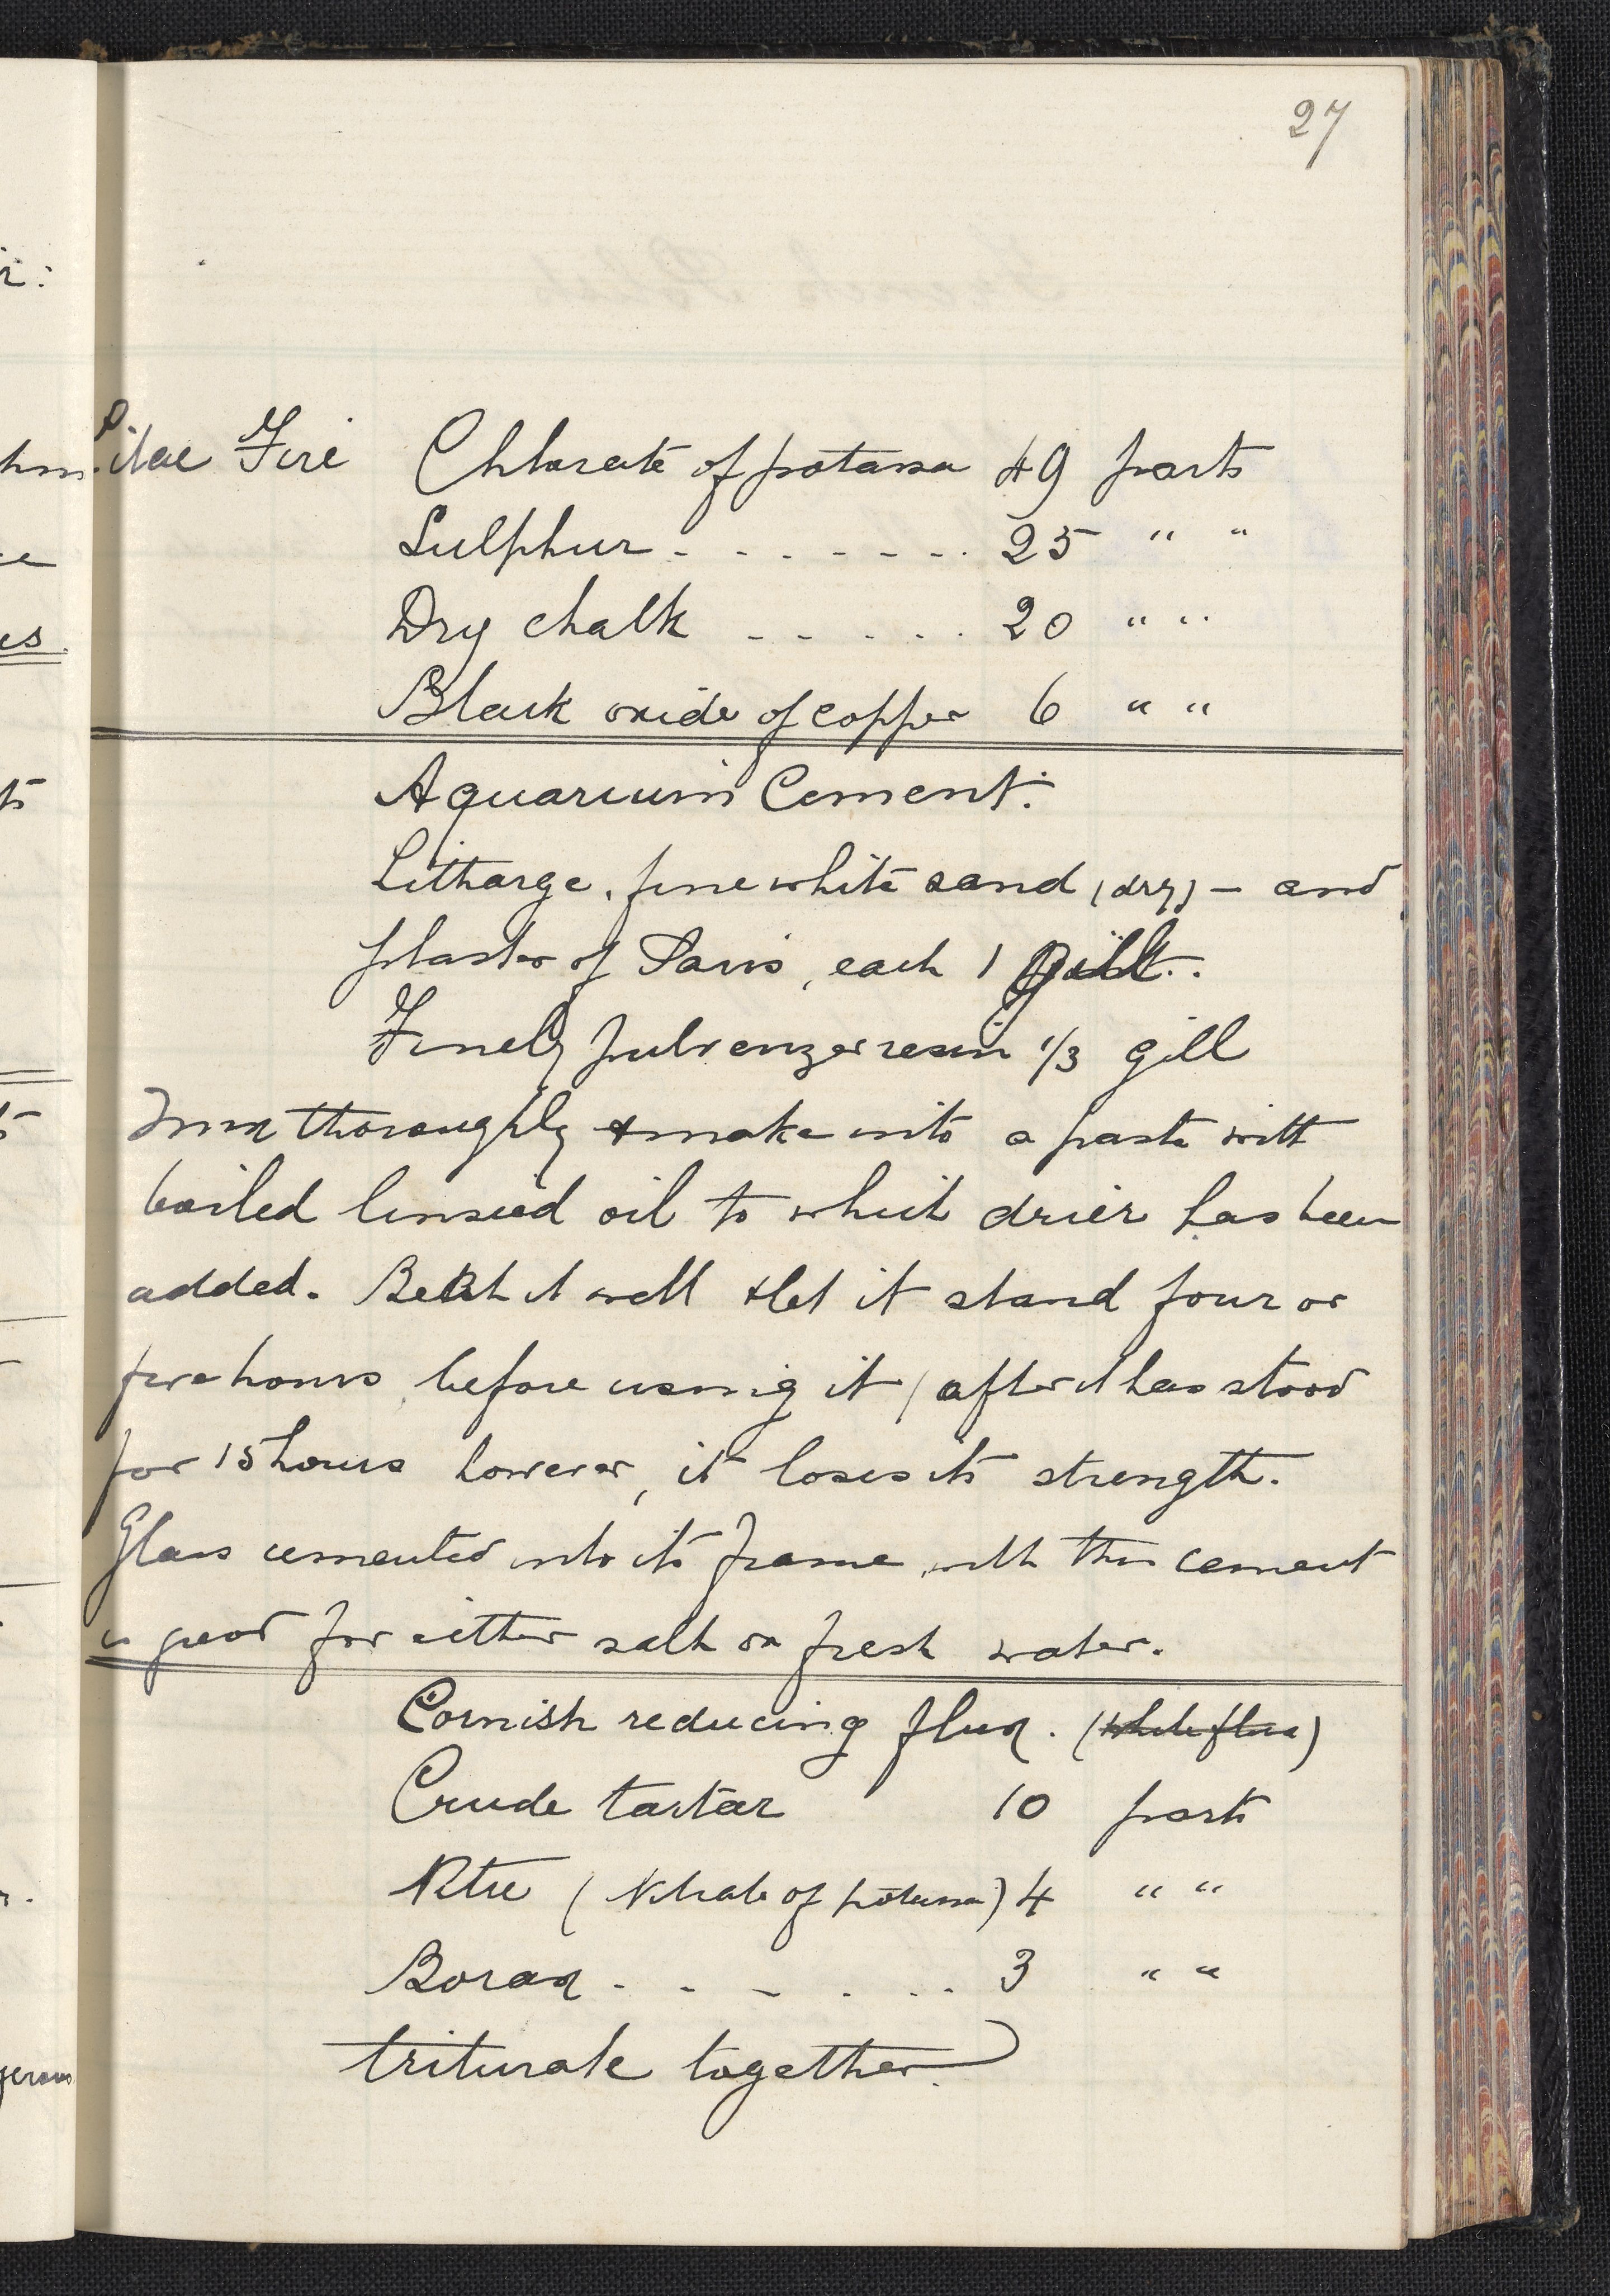 27
Lilac Fire Chlorate of potassa 49 parts
Sulphur - - - - - - - 25 " "
Dry chalk - - - - - 20 " "
Black oxide of copper 6 " "
Aquarium Cement.
Litharge, fine white sand (dry) - and
plaster of Paris, each 1 gill.
Finely pulverizer resin 1/3 gill
mix thoroughly & make into a paste with
boiled linseed oil to which drier has been
added. Beat it well & let it stand four or
five hours before using it / after it has stood
for 15 hours however, it loses its strength.
Glass cemented into its frame with this cement
is good for either salt or fresh water.
Cornish reducing flux. (white flux)
Crude tartar 10 parts
Nitre (Nitrate of potassa) 4 " "
Borax - - - - - - 3 " "
triturate together.
r:
ce
es.
ts